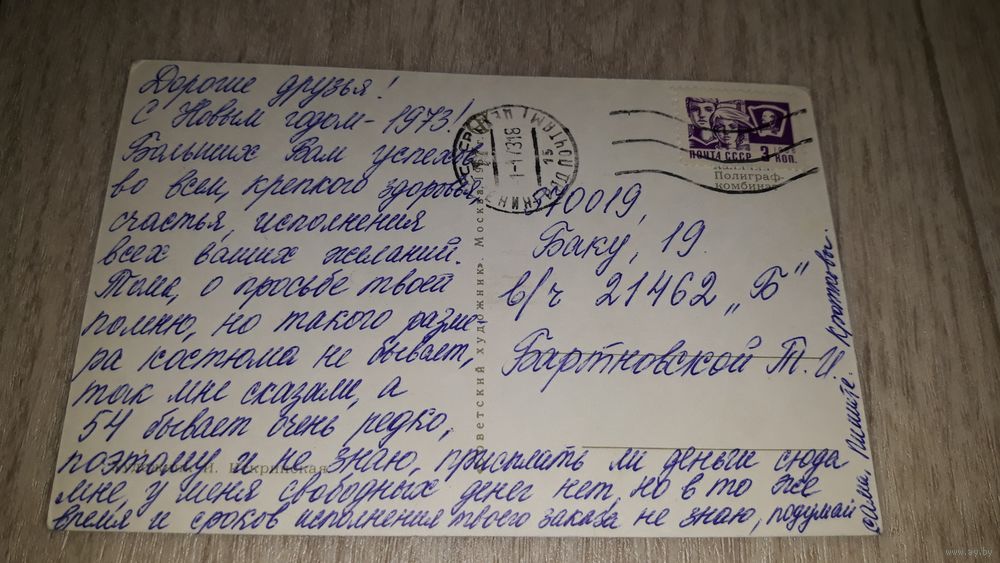 Дорогие друзья!
С Новым годом - 1973!
Больших Вам успехов
во всем, крепкого здоровья,
счастья, исполнения
всех ваших желаний.
Тома, о просьбе твоей
помню, но такого разме-
ра костюма не бывает,
так мне сказали, а
54 бывает очень редко,
поэтому и не знаю, присылать ли деньги сюда
мне, у меня свободных денег нет, но в то же
время и сроков исполнения твоего заказа не знаю, подумай
сама. Пишите. Кротковы.
370019,
Баку, 19.
в/ч 21462 „Б"
Бартновской Т. И.
ПОЧТА СССР 3 КОП.
Полиграф-
комбинат
Советский художник». Москва.
www.ay.by